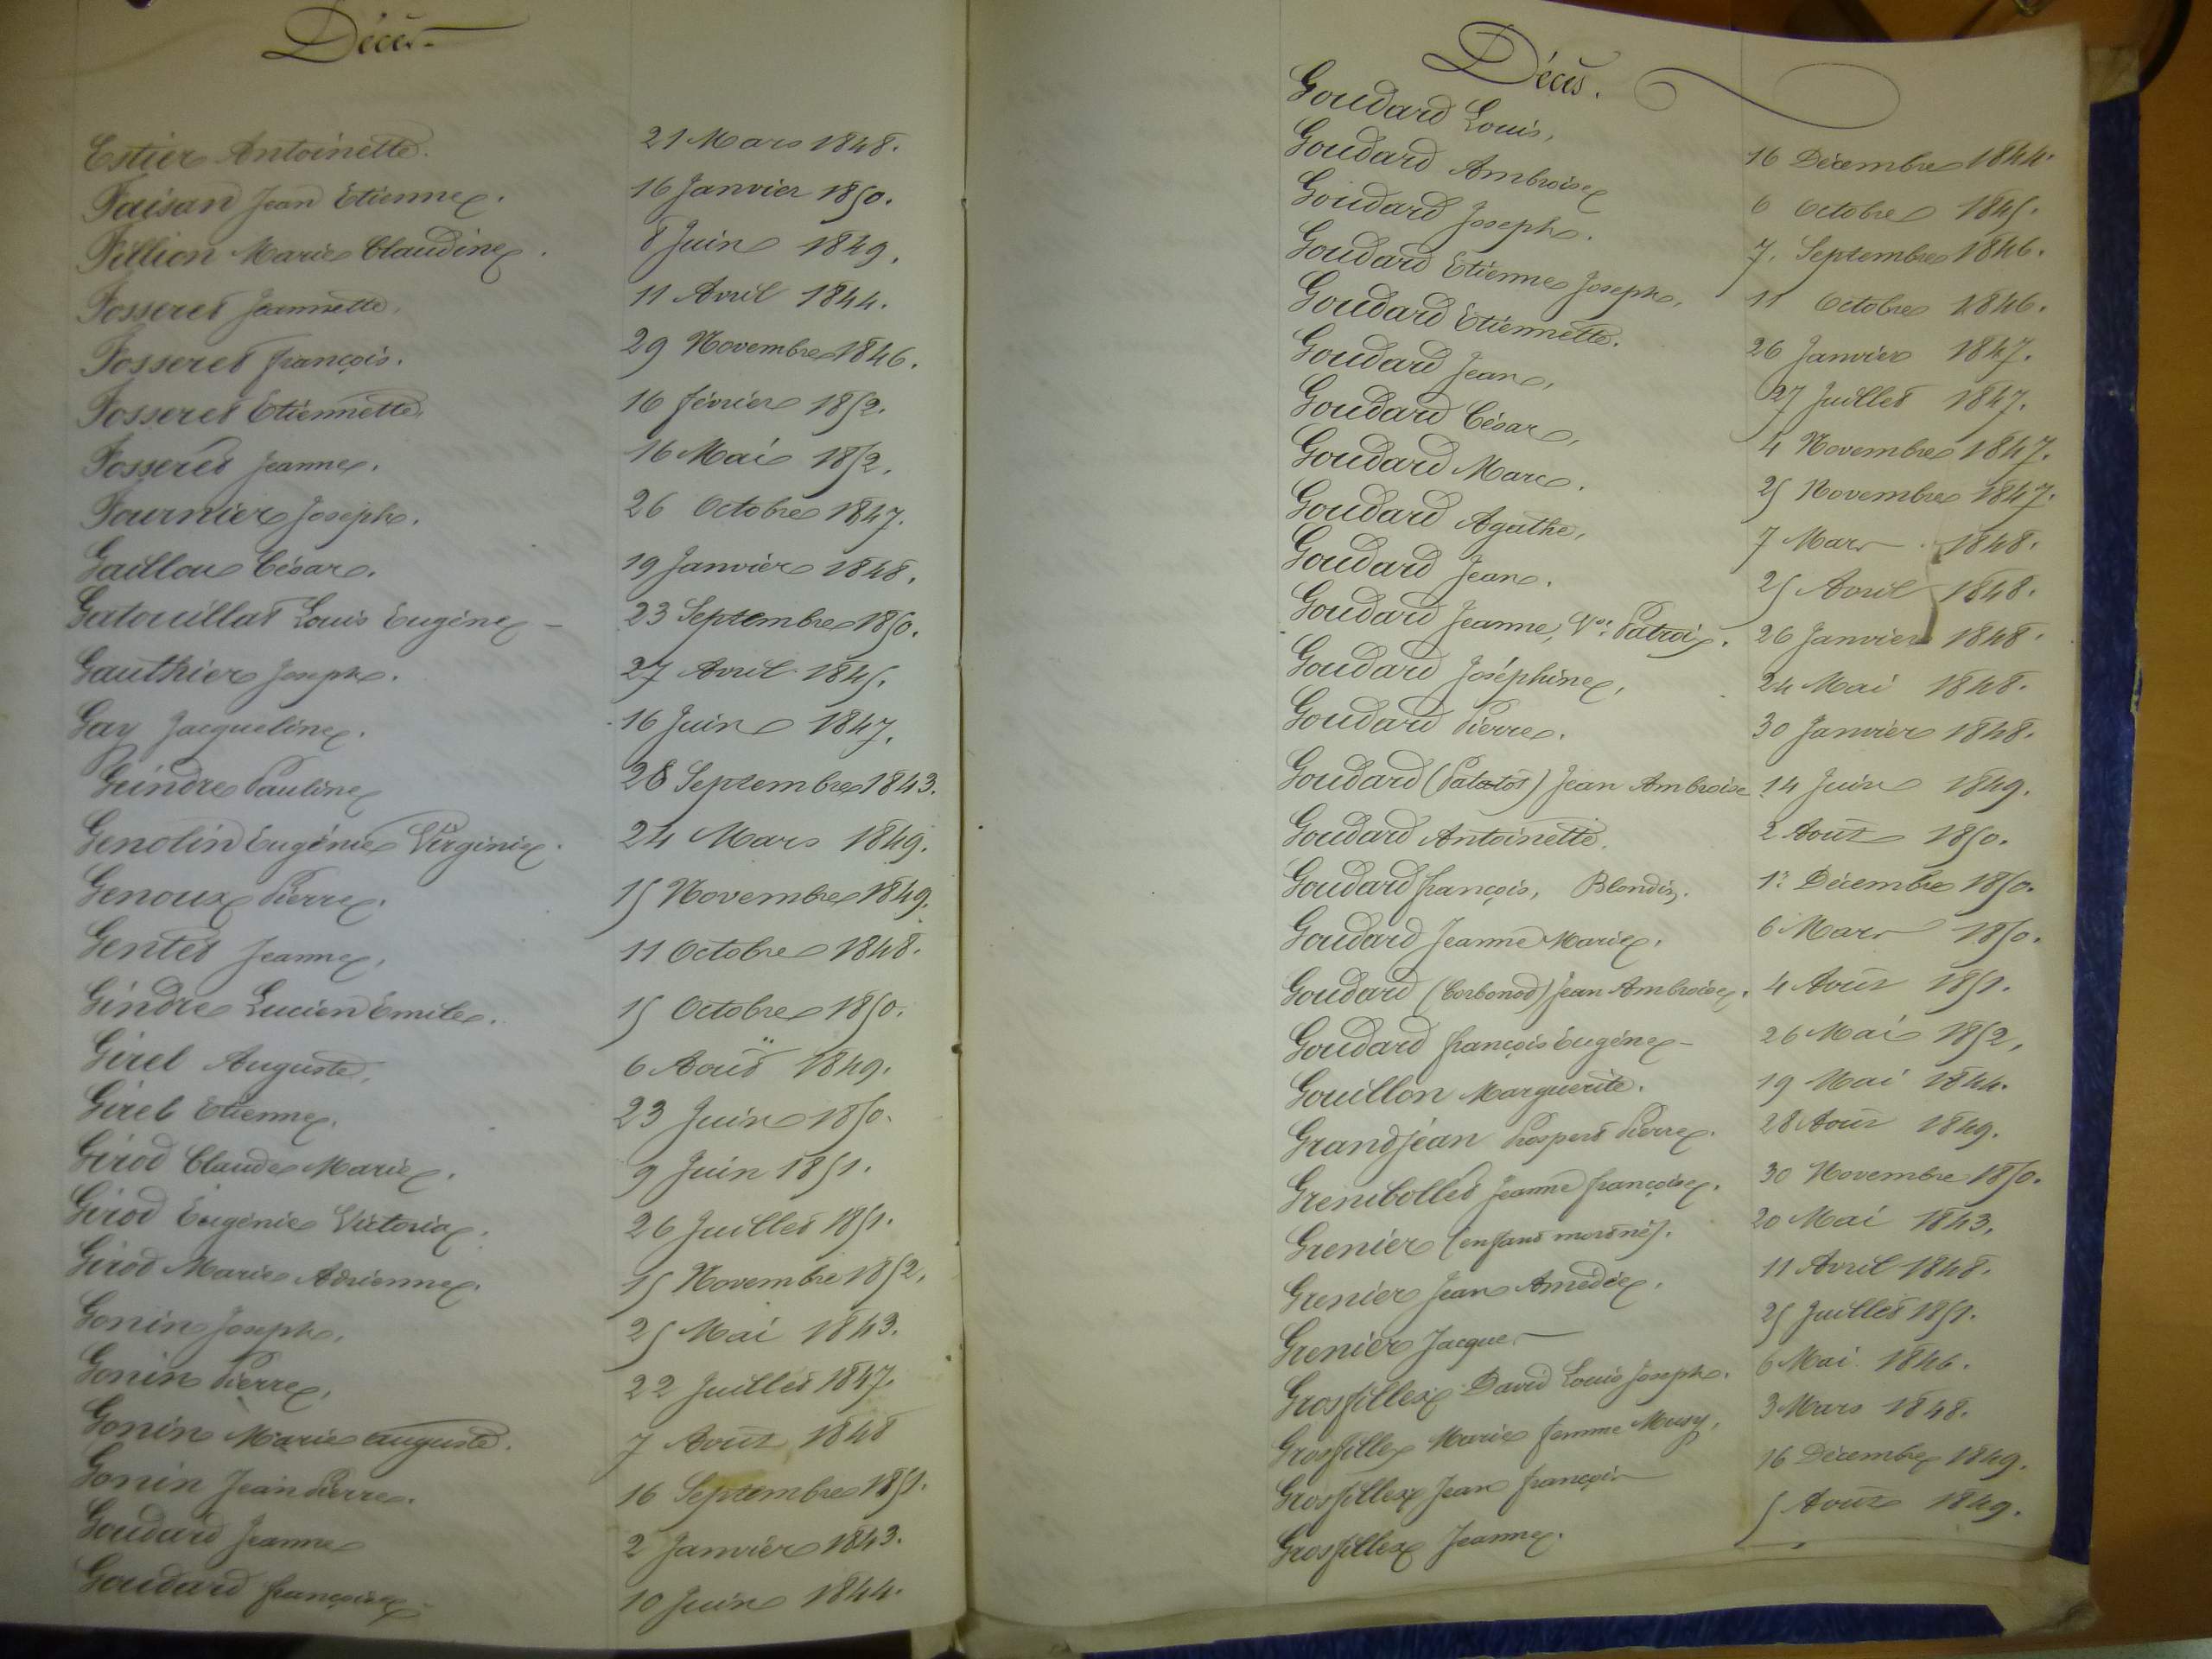 Décès
Estier Antoinette. 21 Mars 1848.
Faisan Jean Etienne. 16 Janvier 1850.
Fillion Marie Claudine. 8 Juin 1849.
Fosseret Jeannette. 11 Avril 1844.
Fosseret françois. 29 Novembre 1846.
Fosseret Etiennette. 16 février 1852.
Fosseret Jeanne. 16 Mai 1852.
Fournier Joseph. 26 Octobre 1847.
Gaillou César. 19 Janvier 1848.
Gatouillat Louis Eugène 23 Septembre 1850.
Gauthier Joseph. 27 Avril 1845.
Gay Jacqueline. 16 Juin 1847.
Geindre Pauline 28 Septembre 1843.
Genolin Eugénie Virginie. 24 Mars 1849.
Genoux Pierre. 15 Novembre 1849.
Gentet Jeanne, 11 Octobre 1848.
Gindre Lucien Emile. 15 Octobre 1850.
Girel Auguste. 6 Août 1849.
Girel Etienne. 23 Juin 1850.
Girod Claude Marie. 9 Juin 1851.
Girod Eugénie Victoria. 26 Juillet 1851.
Girod Marie Adrienne. 15 Novembre 1852.
Gonin Joseph. 25 Mai 1843.
Gonin Pierre, 22 Juillet 1847.
Gonin Marie auguste. 7 Août 1848
Gonin Jean Pierre. 16 Septembre 1851.
Goudard Jeanne 2 Janvier 1843.
Goudard françoise 10 Juin 1844.
Décès.
Goudard Louis, 16 Décembre 1844.
Goudard Ambroise 6 Octobre 1845.
Goudard Joseph. 7. Septembre 1846.
Goudard Etienne Joseph, 11 Octobre 1846.
Goudard Etiennette. 26 Janvier 1847.
Goudard Jean, 27 Juillet 1847.
Goudard César, 4 Novembre 1847.
Goudard Marc. 25 Novembre 1847.
Goudard Agathe, 7 Mars 1848.
Goudard Jean. 25 Avril 1848.
Goudard Jeanne, Vve. Patroix. 26 Janvier 1848.
Goudard Joséphine, 24 Mai 1848.
Goudard Pierre. 30 Janvier 1848.
Goudard (Patatôt) Jean Ambroise 14 Juin 1849.
Goudard Antoinette. 2 Août 1850.
Goudard françois, Blondin. 1er Décembre 1850.
Goudard Jeanne Marie. 6 Mars 1850.
Goudard (Corbonod) Jean Ambroise. 4 Août 1851.
Goudard françois Eugène 26 Mai 1852,
Gouillon Marguerite. 19 Mai 1844.
Grandjean Prosper Pierre. 28 Août 1849.
Grenibollet Jeanne françoise. 30 Novembre 1850.
Grenier (enfant mort né). 20 Mai 1843,
Grenier Jean Amédée. 11 Avril 1848.
Grenier Jacques 25 Juillet 1851.
Grosfillex David Louis Joseph. 6 Mai 1846.
Grosfillex Marie femme Musy, 3 Mars 1848.
Grosfillex Jean françois 16 Décembre 1849.
Grosfillex Jeanne. 5 Août 1849.